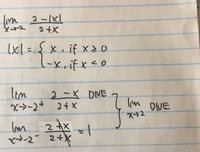 lim x→-2 2-|x| / 2+x
|x| = { x, if x ≥ 0
-x, if x < 0
lim x→-2+ 2-x / 2+x DNE
lim x→2 DNE
lim x→-2- 2+x / 2+x = 1